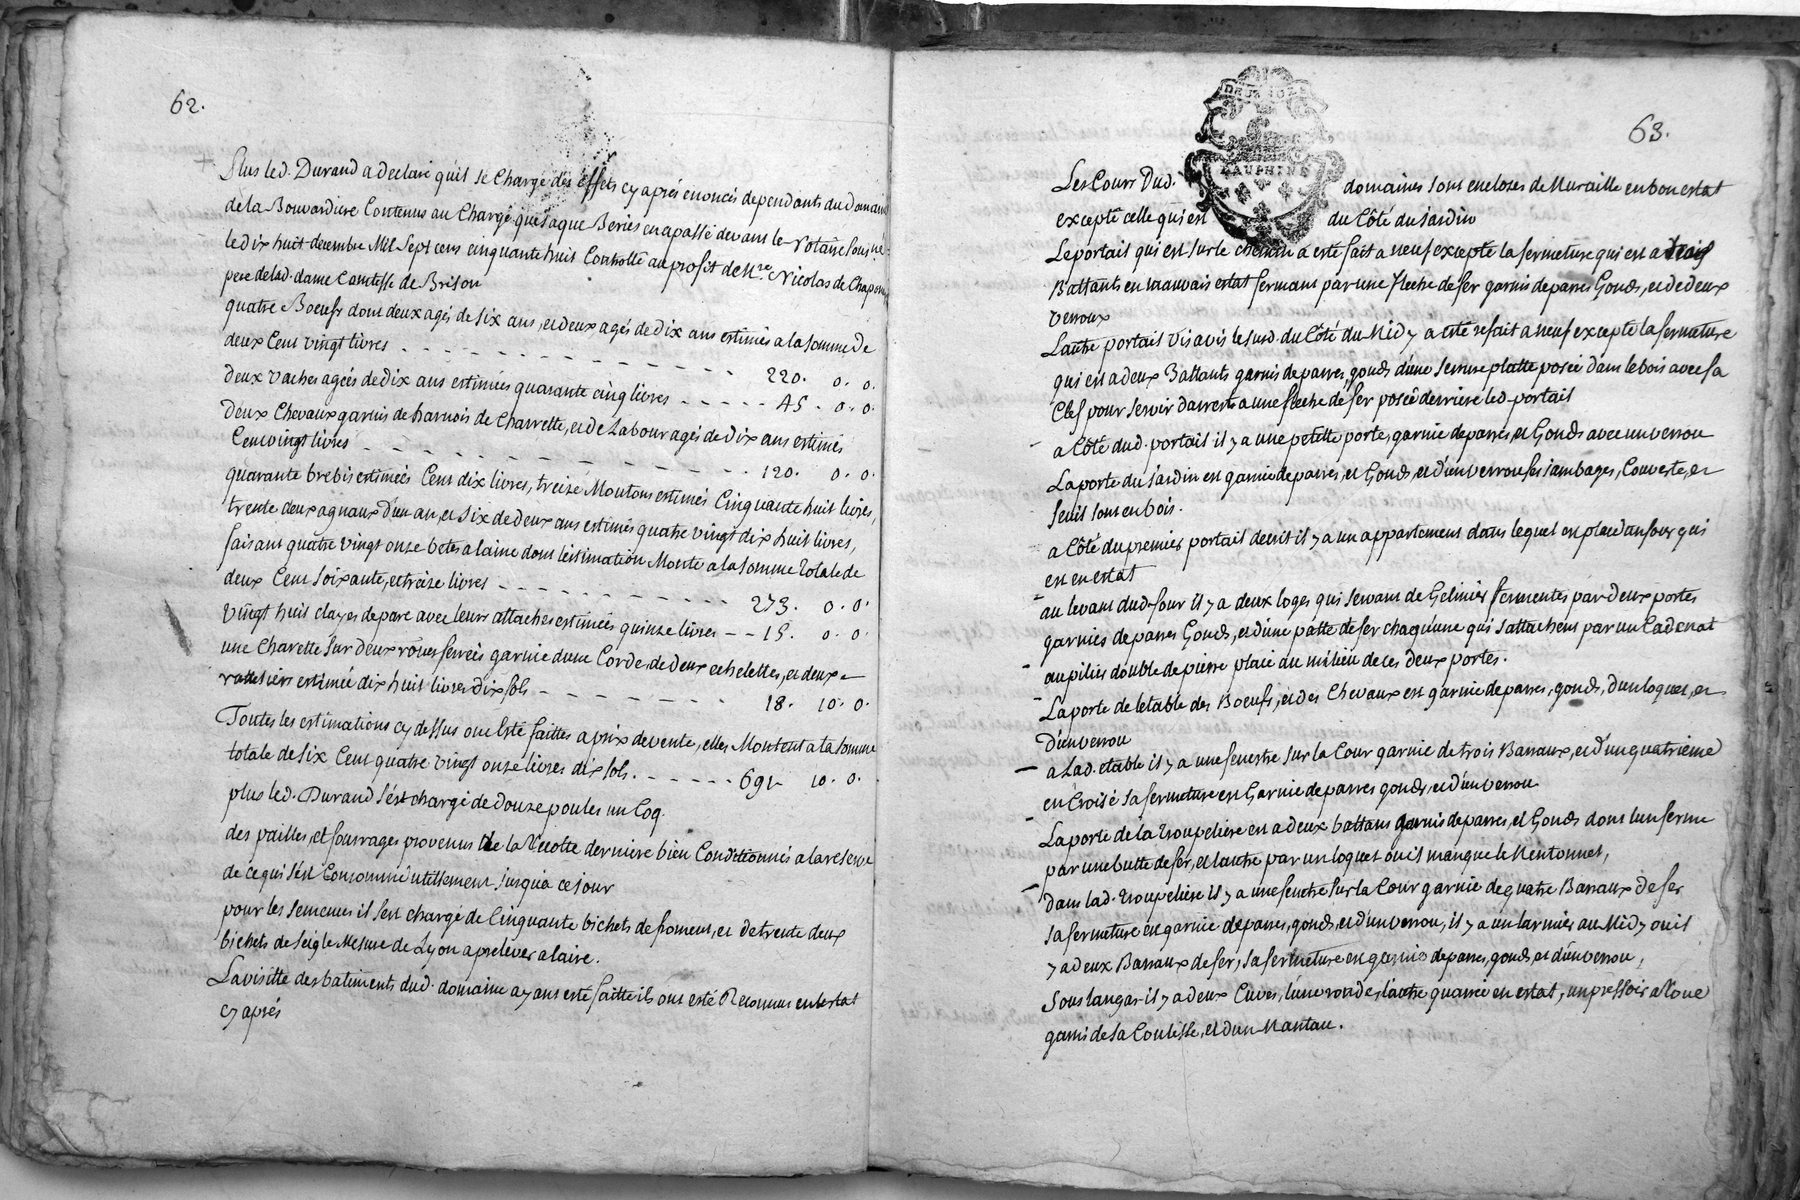 62.
Plus led. Durand a declaré quil se Charge des effets cy aprés enoncés dependants du Domaine
de la Bouvardiere Contenus au Chargé que Jaque Beries en a passé devant le Notaire Soussigné
le dix huit decembre Mil Sept cens cinquante huit Controllé au profit de Mre. Nicolas de Chaponay
pere de lad. dame Comtesse de Brison
quatre Boeufs dont deux agés de six ans, et deux agés de Dix ans estimés a la somme de
deux Cent vingt livres - - - - - - - - - - - - 220. 0. 0.
deux vaches agées de Dix ans estimées quarante cinq livres - - - - - 45. 0. 0.
deux Chevaux garnis de harnois de Charrette, et de Labour agés de Dix ans estimés
Cent vingt livres - - - - - - - - - - - - 120. 0. 0.
quarante brebis estimées Cent dix livres, treize Moutons estimés Cinquante huit livres,
trente deux agnaux d'un an, et six de deux ans estimés quatre vingt dix huit livres,
faisant quatre vingt onze betes a laine dont l'estimation Monte a la somme Totale de
deux Cent soixante, et treize livres - - - - - - - - - 273. 0. 0.
vingt huit clayes de parc avec leurs attaches estimées quinze livres - - 15. 0. 0.
une Charette sur deux roües ferrées garnie d'une Corde, de deux echelettes, et deux
ratteliers estimée dix huit livres dix sols - - - - - - - 18. 10. 0.
Toutes les estimations cy dessus ont Esté faittes a prix de vente, elles Montent a la somme
totale de six Cent quatre vingt onze livres dix sols. - - - - - - 691 10. 0.
plus led. Durand s'est chargé de douze poules un Coq.
des pailles, et fourrages provenus de la Recolte derniere bien Conditionnés a la reserve
de ce qui s'est Consommé utilement jusqu'a ce jour
pour les semences il s'est chargé de Cinquante bichets de froment, et de trente deux
bichets de seigle Mesure de Lyon a prelever a l'aire.
La visitte des batiments dud. domaine ayant esté faitte ils ont esté Reconnus en lestat
cy aprés
63.
DEUX SOLS
DAUPHINE
Les Cours Dud. domaines sont encloses de Muraille en bon estat
excepté celle qui est du Côté du Jardin
Le portait qui est sur le chemin a esté fait a neuf excepté la fermeture qui est a trois
Battants en mauvais estat fermant par une fleche de fer garnis de parres Gonds, et de deux
verroux
L'autre portail vis avis le susd. du Côté du Midy a esté refait a neuf excepté la fermeture
qui est a deux Battants garnis de parres, gonds d'une serrure platte posée dans le bois avec sa
Clef pour servir d'arrest a une fleche de fer posée derriere led. portail
a Côté dud. portail il y a une petitte porte, garnie de parres, et Gonds avec un verrou
La porte du jardin est garnie de parres, et Gonds, et d'un verrou ses jambages, Couverte, et
seuil sont en bois.
a Côté du premier portail decrit il y a un appartement dans lequel est placé un four qui
est en estat
au levant dud. four il y a deux loges qui servent de Gelinier fermentes par deux portes
garnies de parres Gonds, et d'une patte de fer chaqu'une qui s'attachent par un Cadenat
au pilier double de pierre placé au milieu de ces deux portes.
La porte de letable des Boeufs, et des Chevaux est garnie de parres, gonds, d'un loquet, et
D'un verrou
a Lad. etable il y a une fenestre sur la Cour garnie de trois Barraux, et d'un quatrieme
en Croisé sa fermeture est Garnie de parres gonds, et d'un verrou
La porte de la Troupeliere est a deux battans garnis de parres, et Gonds dont l'un ferme
par une butte de fer, et l'autre par un loquet ou il manque le Mentonnet,
dans lad. Troupeliere il y a une fenetre sur la Cour garnie de quatre Barraux de fer
sa fermeture est garnie de parres, gonds, et d'un verrou, il y a un larmier au Midy ou il
y a deux Barraux de fer, sa fermeture est garnie de parres, gonds, et d'un verrou,
sous langar il y a deux Cuves, l'une ronde, l'autre quarrée en estat, un pressoir a Roue
garni de sa Coulisse, et d'un Mantau.